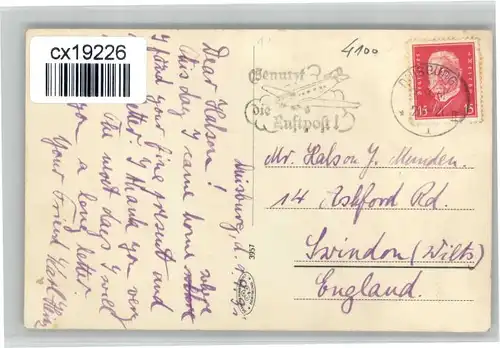 cx19226
4100
Benutzt
die
Luftpost!
15 15
Duisburg, d.
Dear Halson!
This day I came home where
I find your fine present and
letter. I thank you very
The next days I will
you a long letter.
Your friend Karl-Heinz
3151
Mr. Halson J. Munden.
14 Ashford Rd.
Swindon (Wilts)
England.